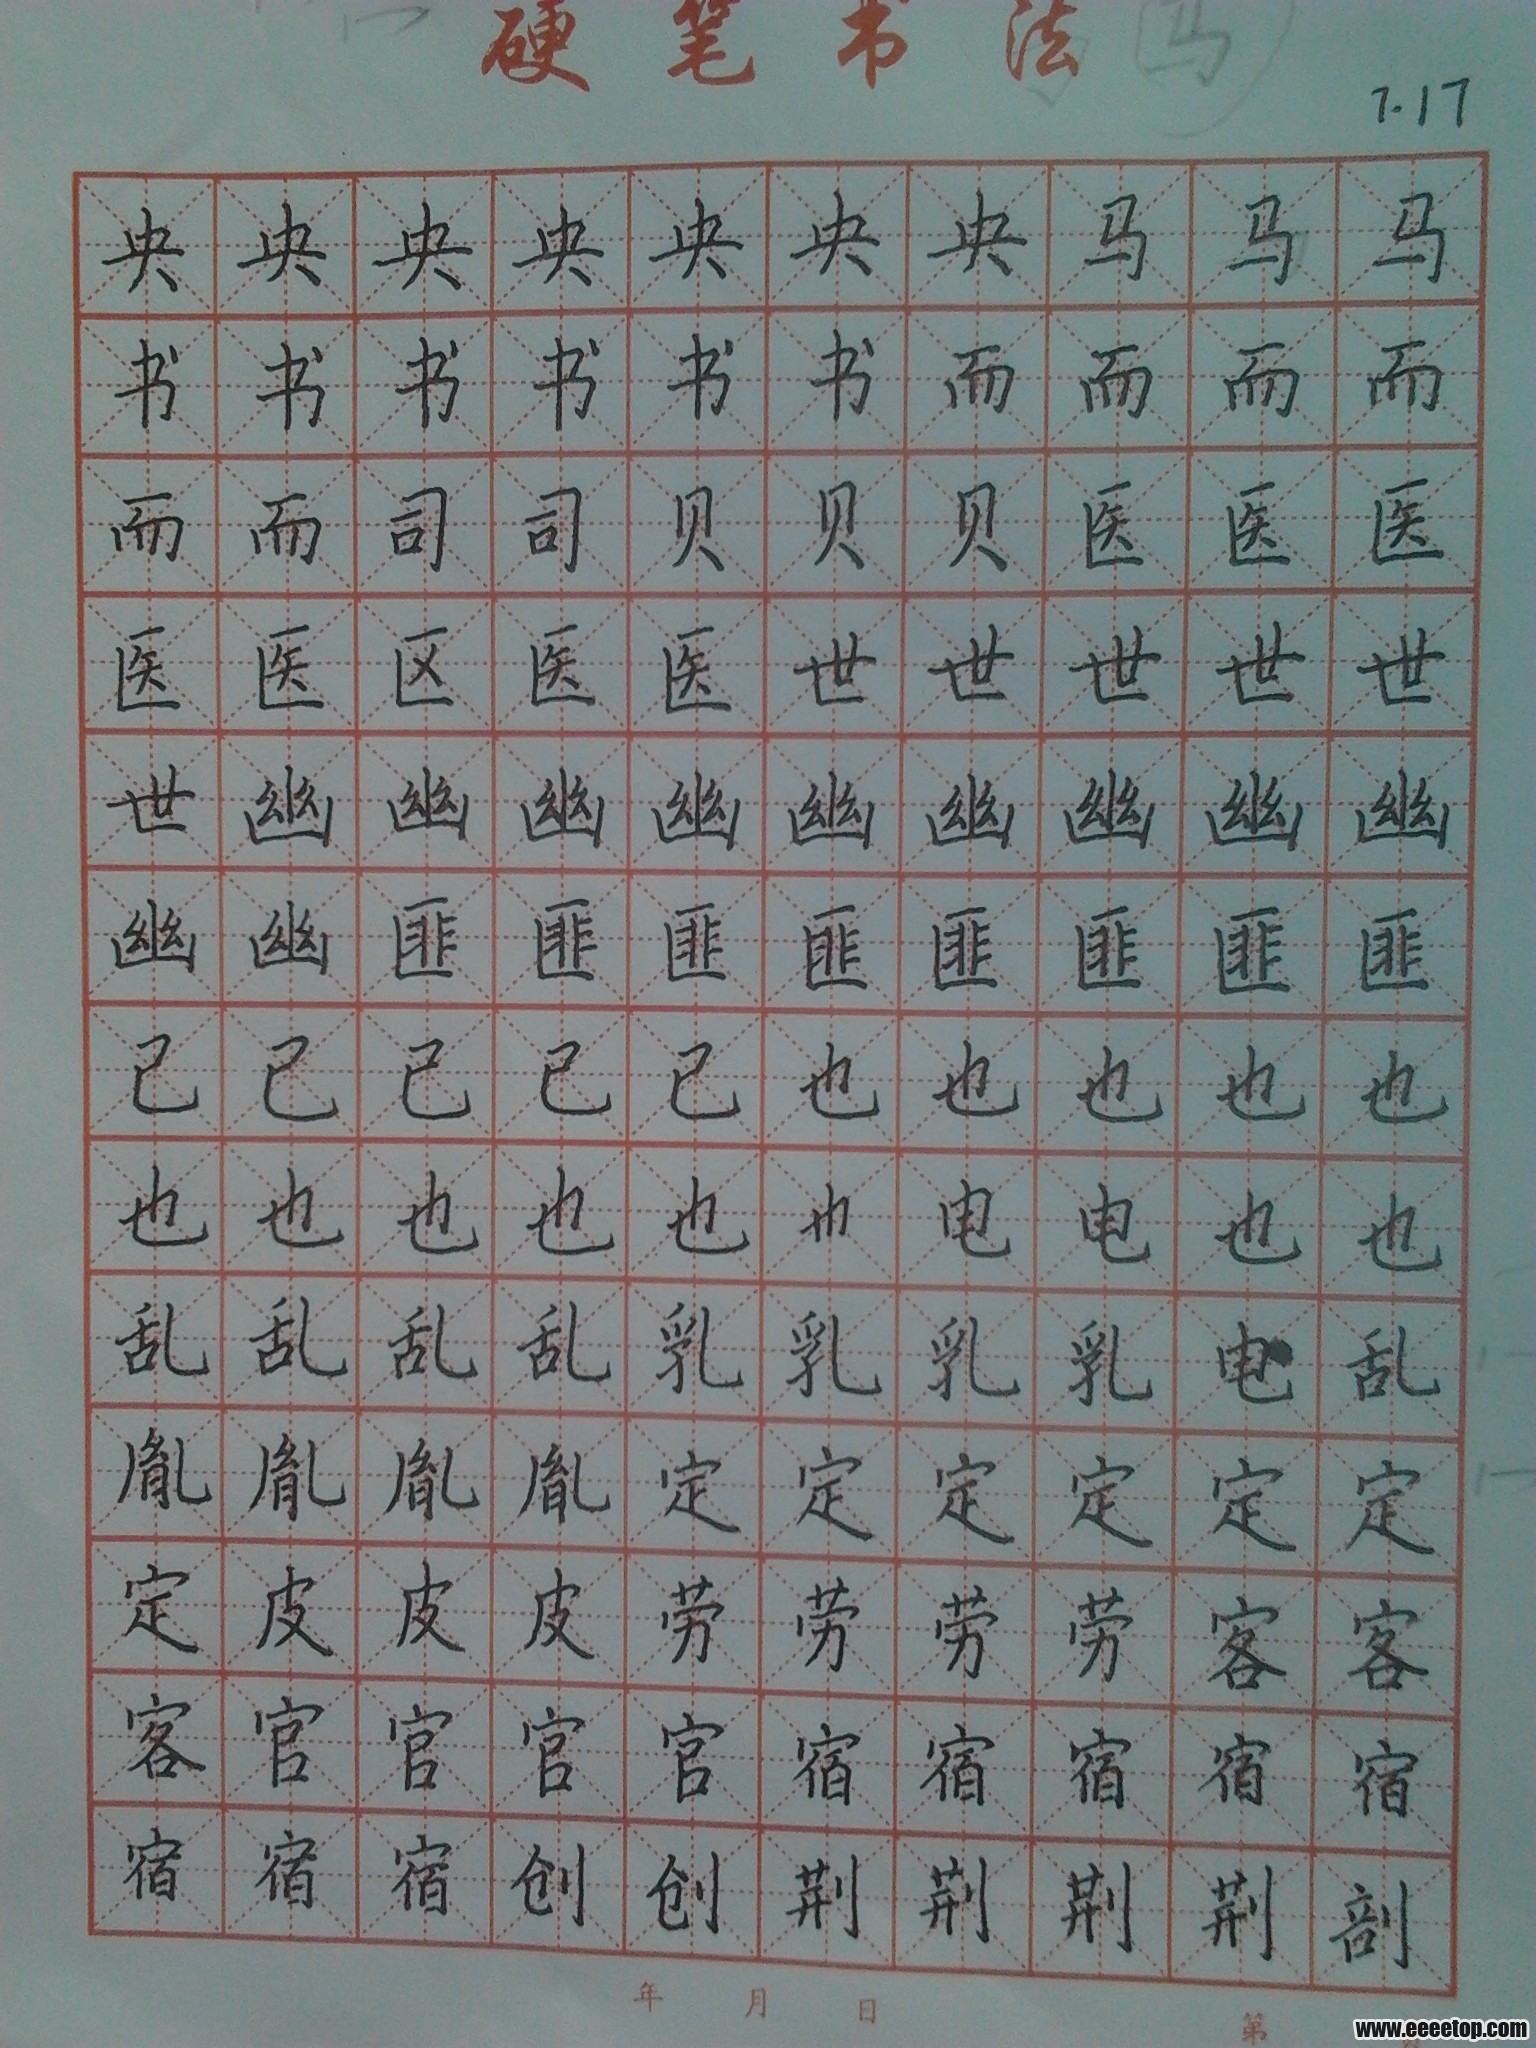 硬笔书法
7.17
央央央央央央央马马马
书书书书书书而而而而
而而司司贝贝贝医医医
医医区医医世世世世世
世幽幽幽幽幽幽幽幽幽
幽幽匪匪匪匪匪匪匪匪
己己己己己也也也也也
也也也也也电电也也
乱乱乱乱乳乳乳乳电乱
胤胤胤胤定定定定定定
定皮皮皮劳劳劳劳客客
客官官官官宿宿宿宿宿
宿宿宿创创荆荆荆荆剖
年 月 日
第
www.eeeetop.com